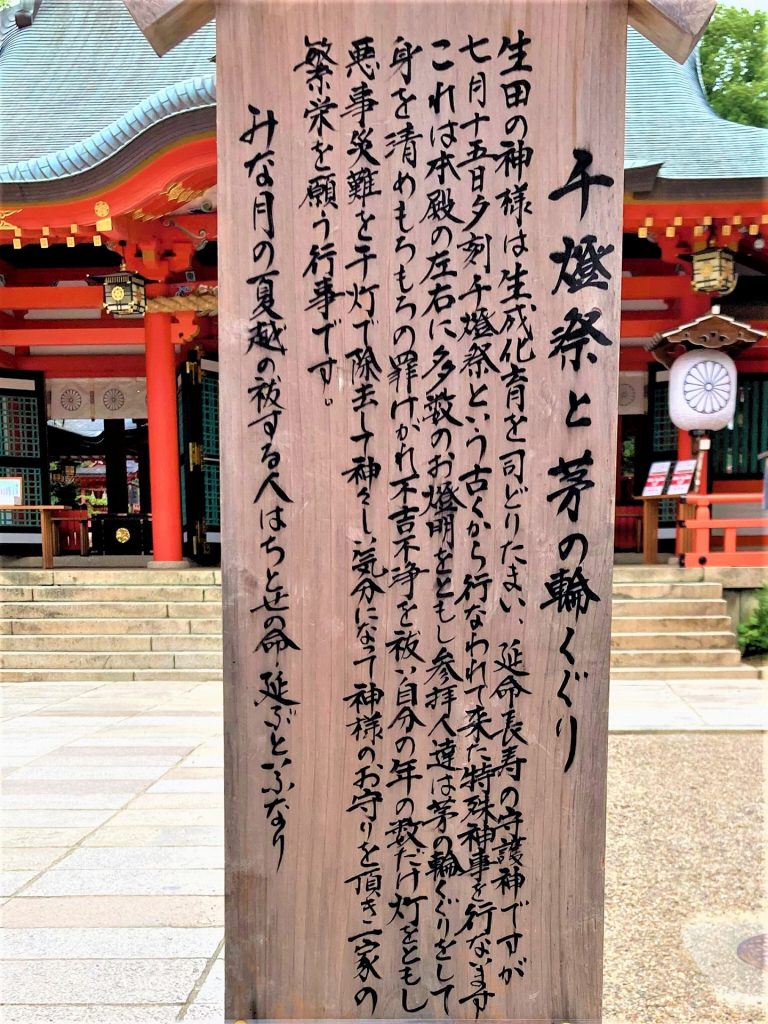 千燈祭と茅の輪くぐり
生田の神様は生成化育を司どりたまい、延命長寿の守護神ですが
七月十五日夕刻千燈祭という古くから行なわれて来た特殊神事を行ないます
これは本殿の左右に多数のお燈明をともし参拝人達は茅の輪くぐりをして
身を清めもろもろの罪けがれ不吉不浄を祓い自分の年の数だけ灯をともし
悪事災難を千灯で除去して神々しい気分になって神様のお守りを頂き一家の
繁栄を願う行事です。
みな月の夏越の祓する人はちとせの命延ぶといふなり